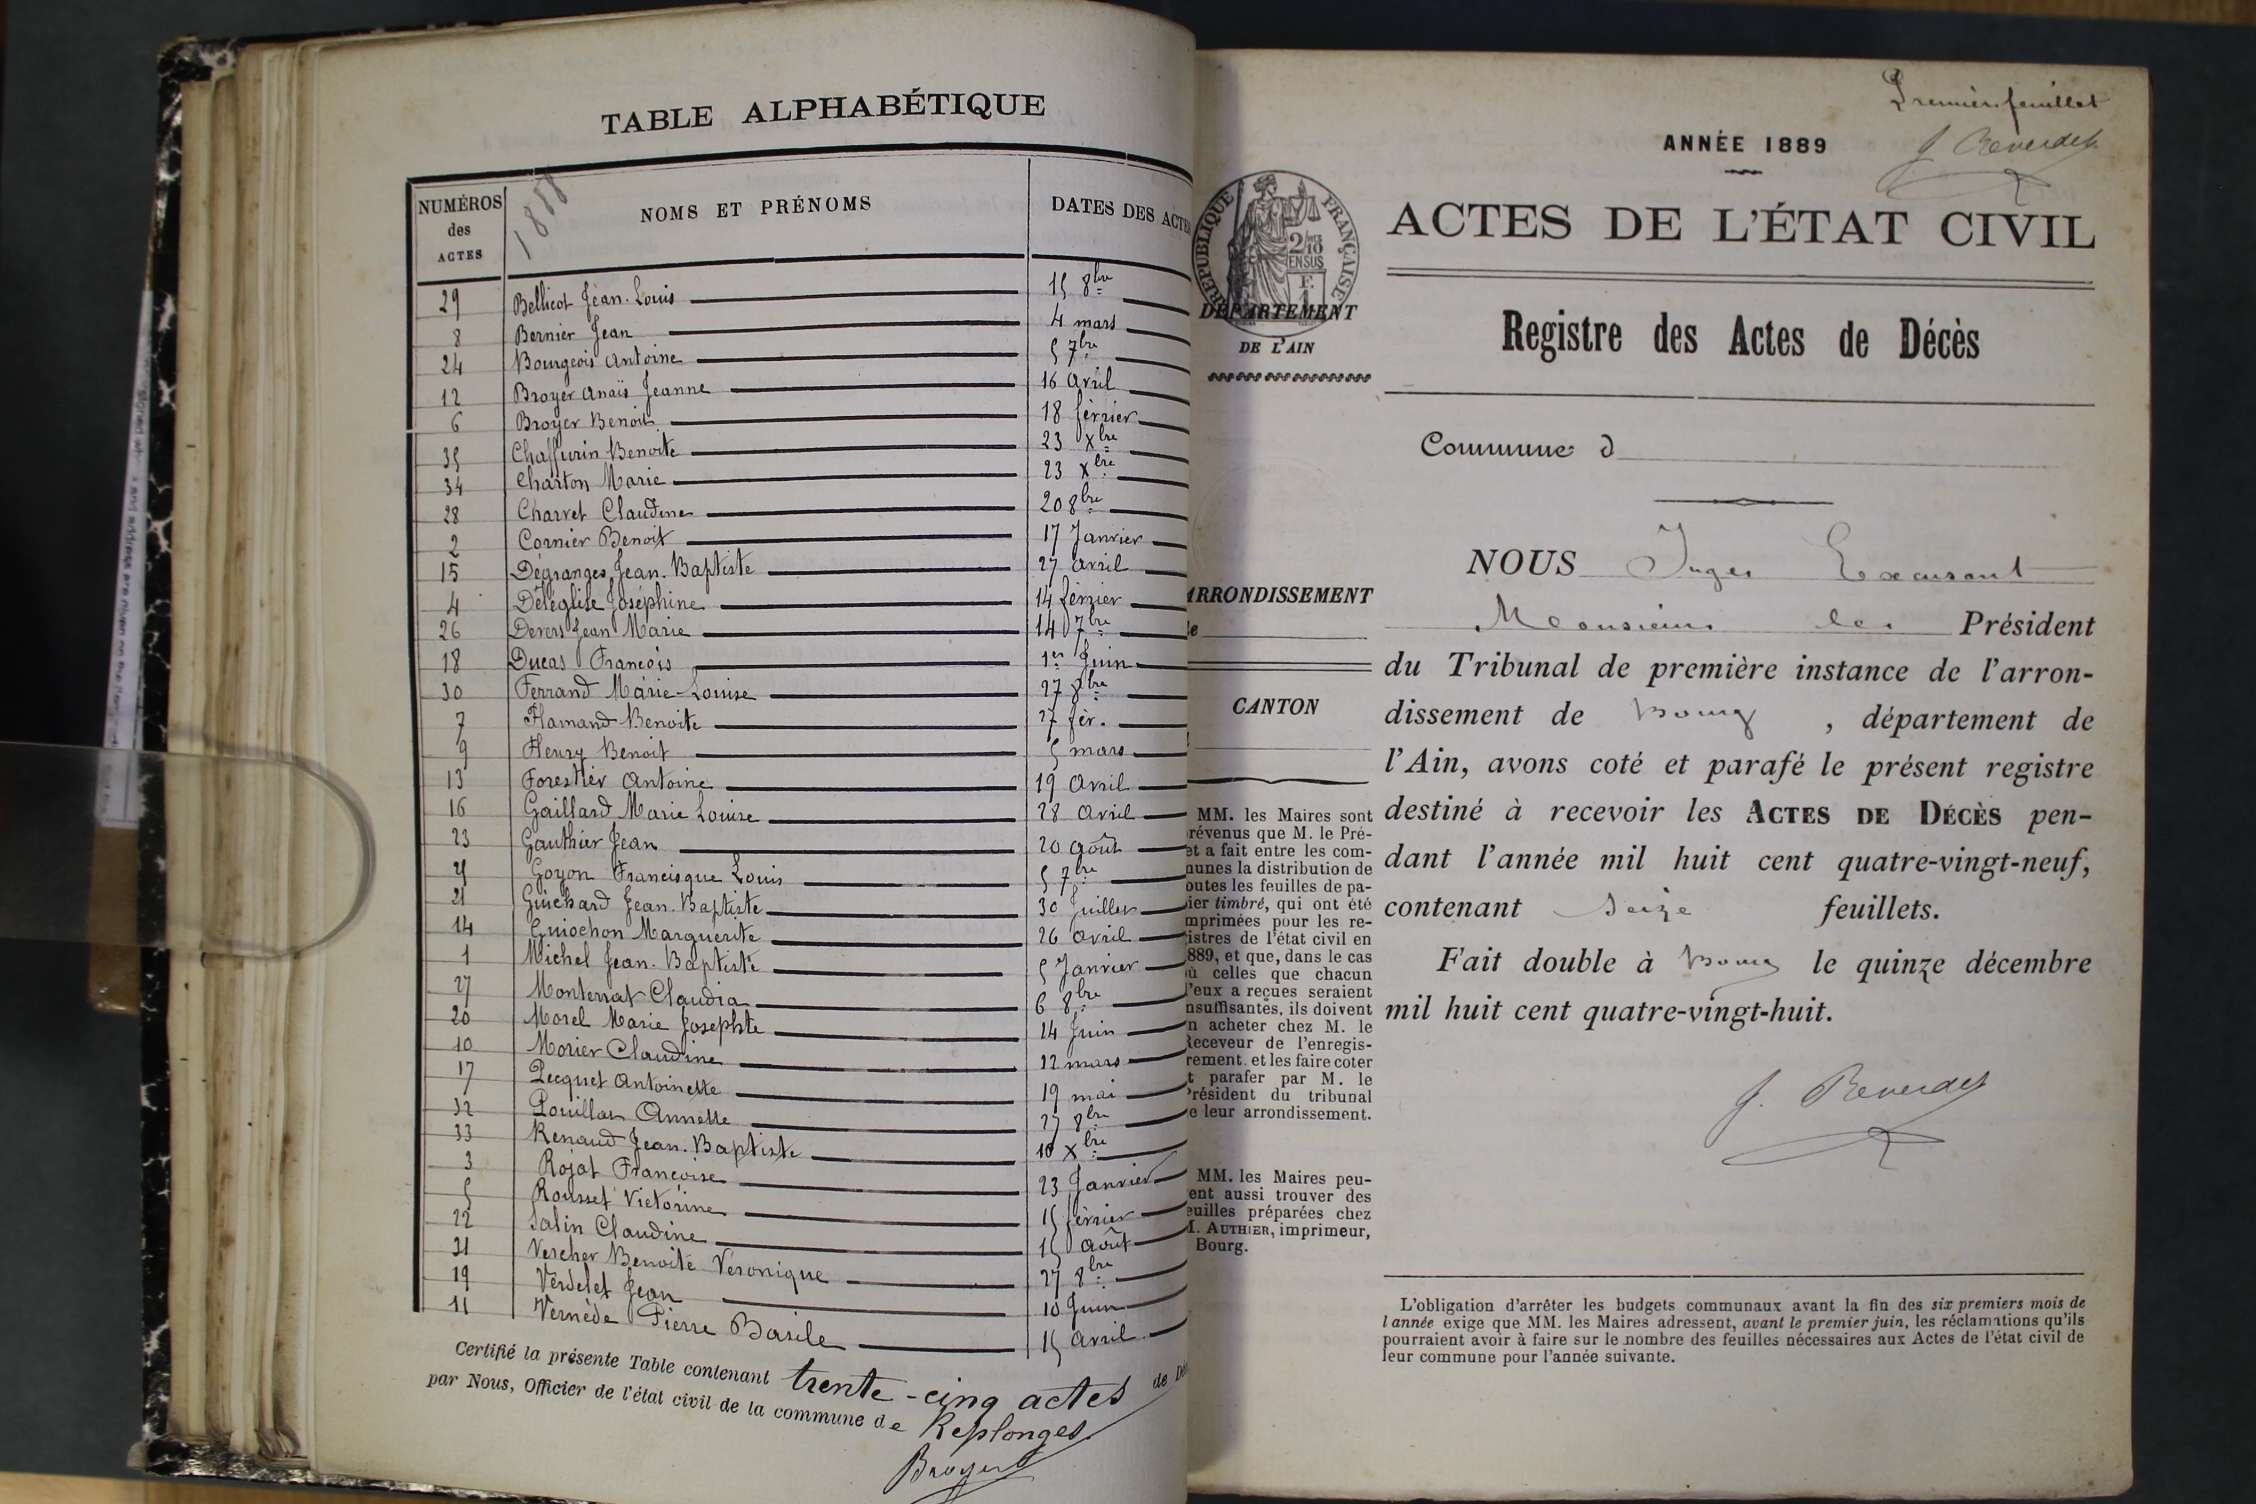 TABLE ALPHABÉTIQUE
1888
NUMÉROS des ACTES NOMS ET PRÉNOMS DATES DES ACTES
29 Bellicot Jean-Louis 15 8bre
8 Bernier Jean 4 mars
24 Bourgeois Antoine 5 7bre
12 Broyer Anaïs Jeanne 16 Avril
6 Broyer Benoit 18 février
35 Chaffurin Benoite 23 Xbre
34 Charton Marie 23 Xbre
28 Charvet Claudine 20 8bre
2 Cornier Benoit 17 Janvier
15 Dégranges Jean-Baptiste 27 Avril
4 Déléglise Joséphine 14 février
26 Devers Jean Marie 14 7bre
18 Ducas François 1er Juin
30 Ferrand Marie-Louise 27 8bre
7 Flamand Benoite 27 fév.
9 Fleury Benoit 5 mars
13 Forestier Antoine 19 Avril
16 Gaillard Marie Louise 28 Avril
23 Gauthier Jean 20 août
25 Goyon Francisque Louis 5 7bre
21 Guichard Jean-Baptiste 30 Juillet
14 Guiochon Marguerite 26 Avril
1 Michel Jean-Baptiste 5 Janvier
27 Monterrat Claudia 6 8bre
20 Morel Marie Josephte 14 Juin
10 Morier Claudine 12 mars
17 Pecquet Antoinette 19 mai
32 Pouillat Annette 27 8bre
33 Renaud Jean-Baptiste 10 Xbre
3 Rojat Françoise 23 Janvier
5 Rousset Victorine 15 février
22 Salin Claudine 15 août
31 Vercher Benoite Véronique 27 8bre
19 Verdelet Jean 10 Juin
11 Vernède Pierre Basile 15 Avril
Certifié la présente Table contenant trente-cinq actes de Dé
par Nous, Officier de l'état civil de la commune de Replonges
Broyer
Premier feuillet
J. Reverdy
ANNÉE 1889
ACTES DE L'ÉTAT CIVIL
Registre des Actes de Décès
RÉPUBLIQUE FRANÇAISE
2/10 EN SUS
F. 1
DÉPARTEMENT
DE L'AIN
Commune d
ARRONDISSEMENT
CANTON
MM. les Maires sont
révenus que M. le Pré-
et a fait entre les com-
nunes la distribution de
outes les feuilles de pa-
ier timbré, qui ont été
mprimées pour les re-
istres de l'état civil en
889, et que, dans le cas
où celles que chacun
d'eux a reçues seraient
nsuffisantes, ils doivent
n acheter chez M. le
Receveur de l'enregis-
rement, et les faire coter
t parafer par M. le
Président du tribunal
e leur arrondissement.
MM. les Maires peu-
ent aussi trouver des
euilles préparées chez
M. AUTHIER, imprimeur,
Bourg.
NOUS Juge Excusant
Monsieur le Président
du Tribunal de première instance de l'arron-
dissement de Bourg, département de
l'Ain, avons coté et parafé le présent registre
destiné à recevoir les ACTES DE DÉCÈS pen-
dant l'année mil huit cent quatre-vingt-neuf,
contenant seize feuillets.
Fait double à Bourg le quinze décembre
mil huit cent quatre-vingt-huit.
J. Reverdy
L'obligation d'arrêter les budgets communaux avant la fin des six premiers mois de
l'année exige que MM. les Maires adressent, avant le premier juin, les réclamations qu'ils
pourraient avoir à faire sur le nombre des feuilles nécessaires aux Actes de l'état civil de
leur commune pour l'année suivante.